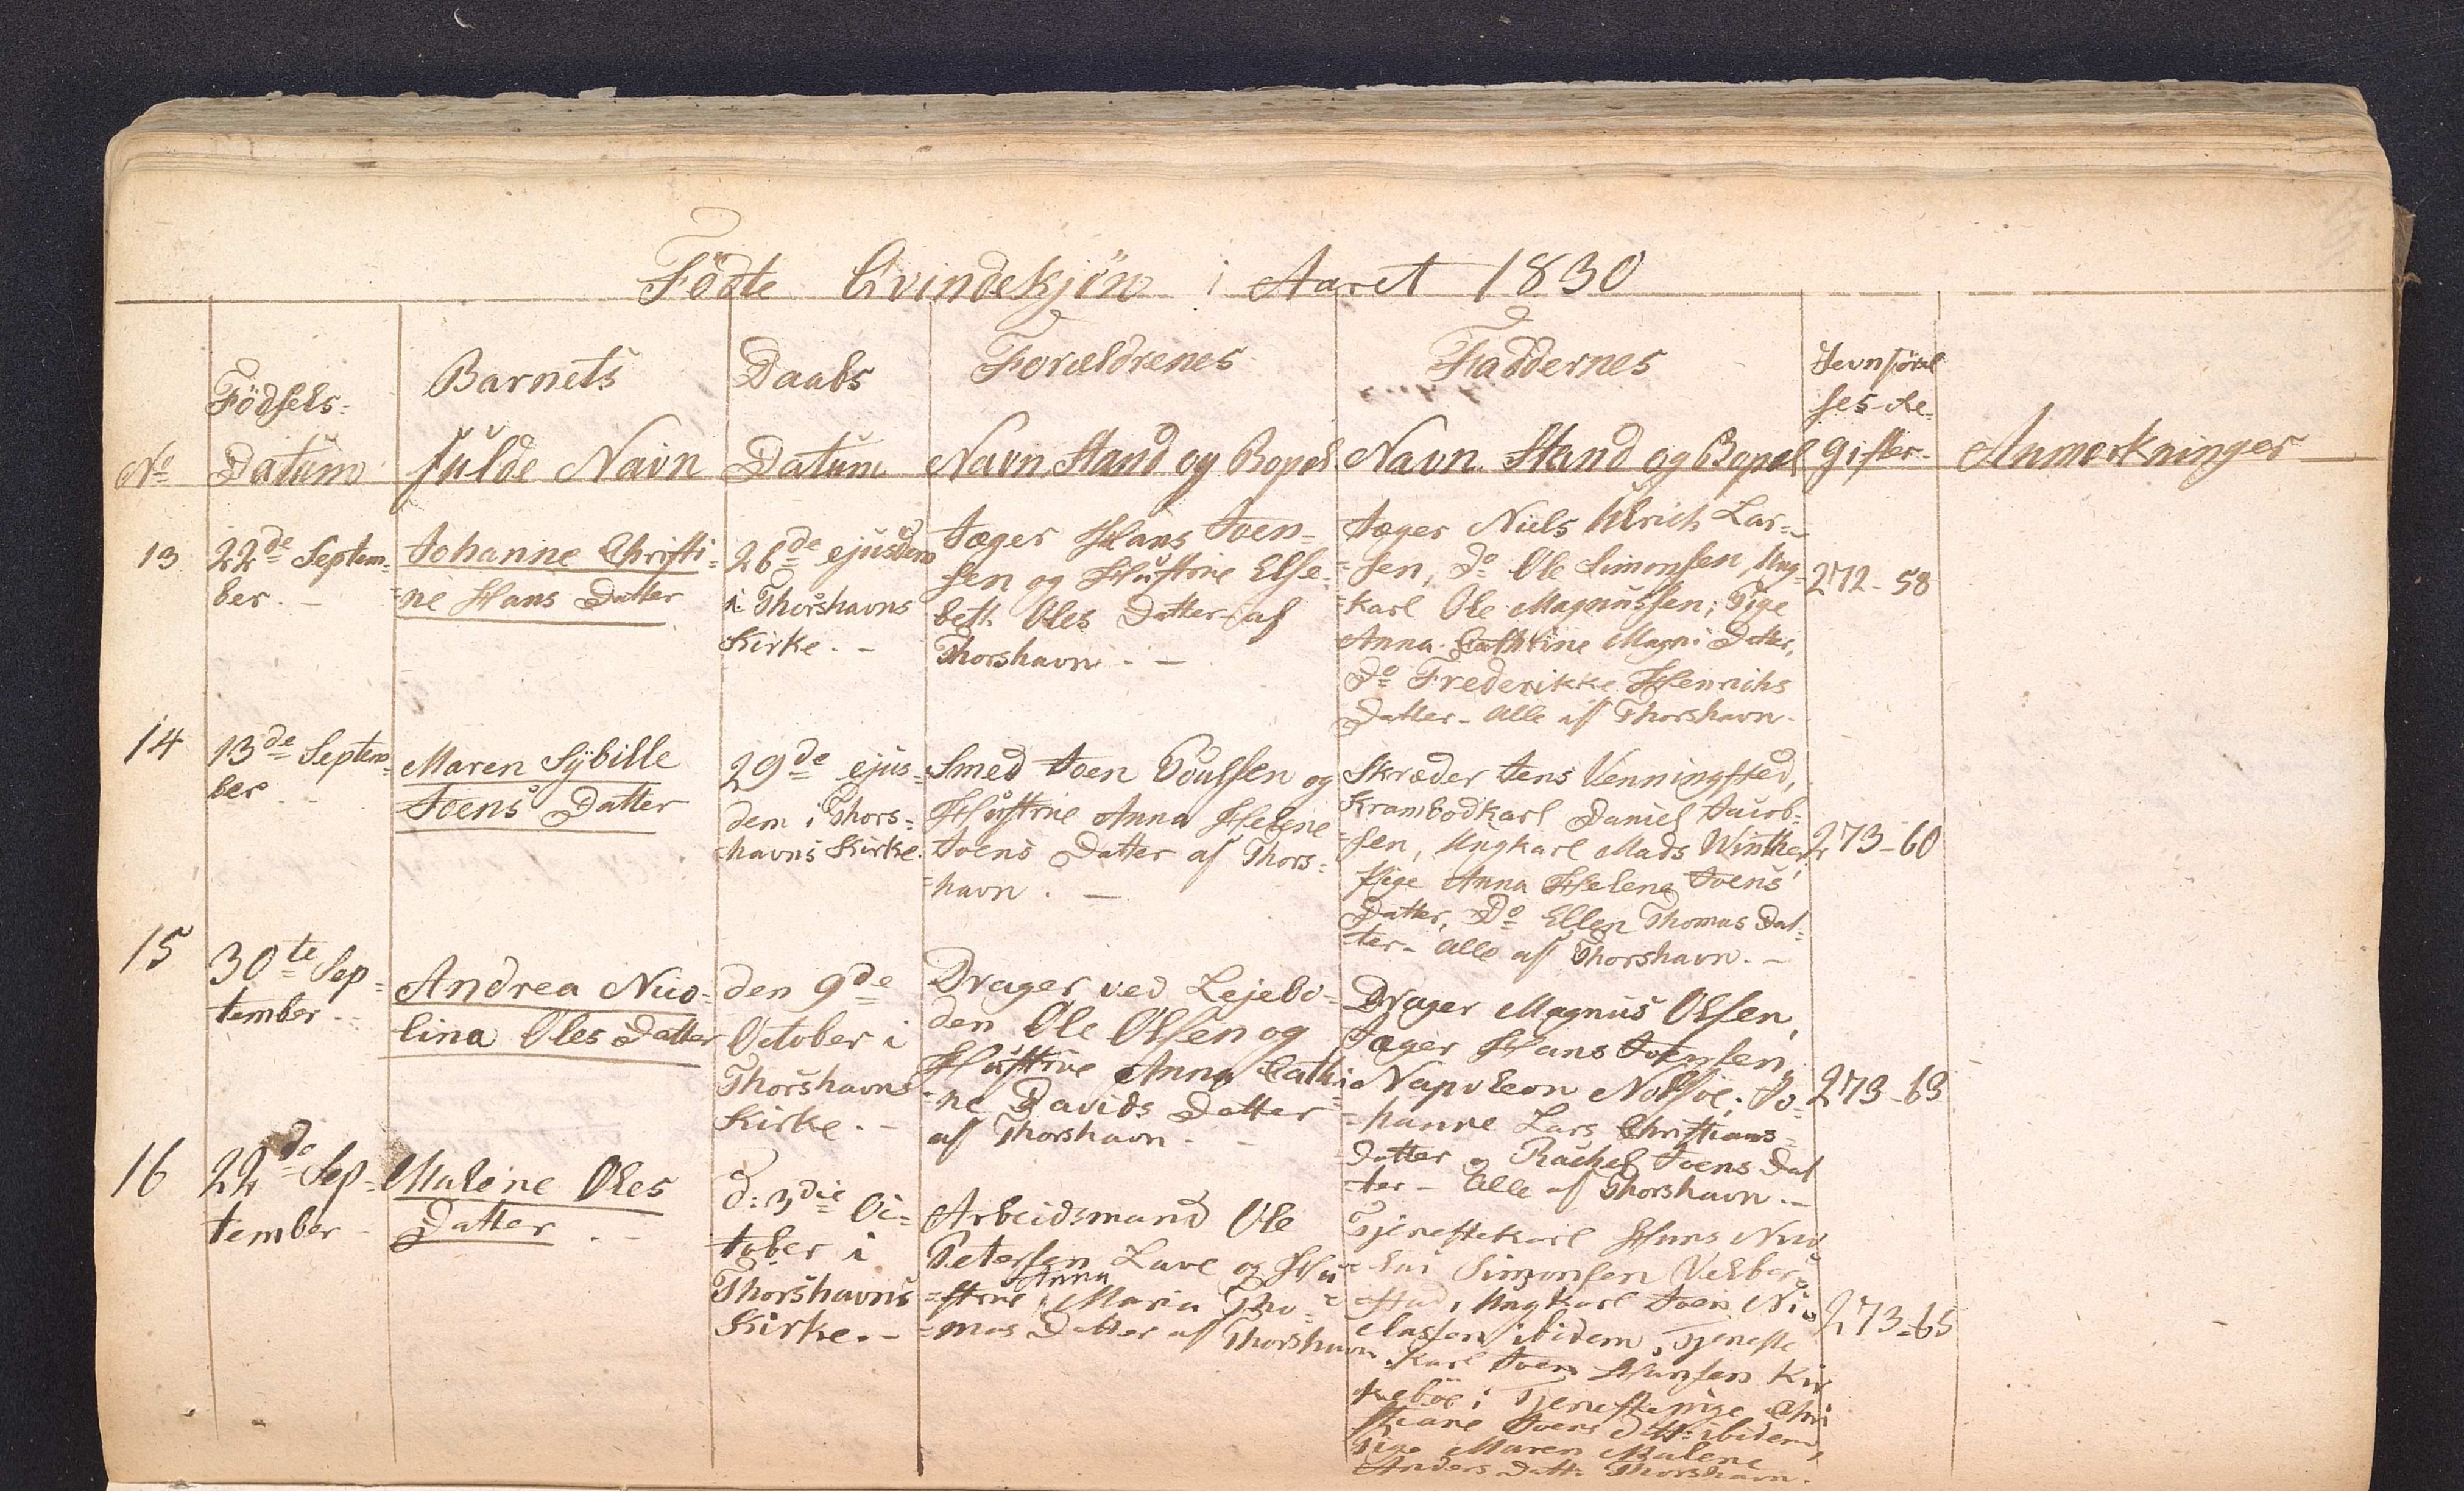 Födte Qvindekjøn i Aaret 1830
No
Födsels-
Datum
Barnets
fulde Navn
Daabs
Datum
Forældrenes
Navn Stand og Bopæl
Faddernes
Navn Stand og Bopæl
Jevnförel
ses-Re-
gister
Anmerkninger
13
22de Septem-
ber. -
Johanne Christi-
ne Hans Datter
26de ejusdem
i Thorshavns
Kirke. -
Jæger Hans Joen-
sen og Hustrue Else-
beth Oles Datter af
Thorshavn. -
Jæger Niels Ulrich Lar-
sen, Do Ole Simonsen, Ung-
karl Ole Magnussen; Pige
Anna Cathrine Magni Datter,
Do Frederikke Henrichs
Datter - Alle af Thorshavn -
272-58
14
13de Septem-
ber. -
Maren Sÿbille
Joens Datter
29de ejus-
dem i Thors-
havns Kirke.
Smed Joen Poulsen og
Hustrue Anna Helene
Joens Datter af Thors-
havn. -
Skræder Jens Venningsted,
Krambodkarl Daniel Jacob-
sen, Ungkarl Mads Winther,
Pige Anna Helene Joens
Datter, Do Ellen Thomas Dat-
ter - alle af Thorshavn. -
273-60
15
30te Sep-
tember. -
Andrea Nico-
lina Oles Datter
den 9de
October i
Thorshavns
Kirke. -
Drager ved Lejebo-
den Ole Olsen og
Hustrue Anna Cathri-
ne Davids Datter
af Thorshavn. -
Drager Magnus Olsen,
Jæger Hans Joensen,
Napoleon Nolsöe; Jo-
hanne Lars Christians-
datter og Rachel Joens Dat
ter - Alle af Thorshavn. -
273-63
16
22de Sep-
tember -
Malene Oles
Datter. -
d: 3die Oc-
tober i
Thorshavns
Kirke. -
Arbeidsmand Ole
Petersen Lave og Hu-
strue Anna Maria Tho-
mas Datter af Thorshavn.
Tjenestekarl Hans Nico
lai Simonsen Velbar-
stad, Ungkarl Joen Ni-
clasen ibidem, Tjeneste
karl Joen Hansen Kir
kebøe; Tjenestepige Chri
stiane Joens Datt: ibidem,
Pige Maren Malene
Anders Datt: Thorshavn.
273-65